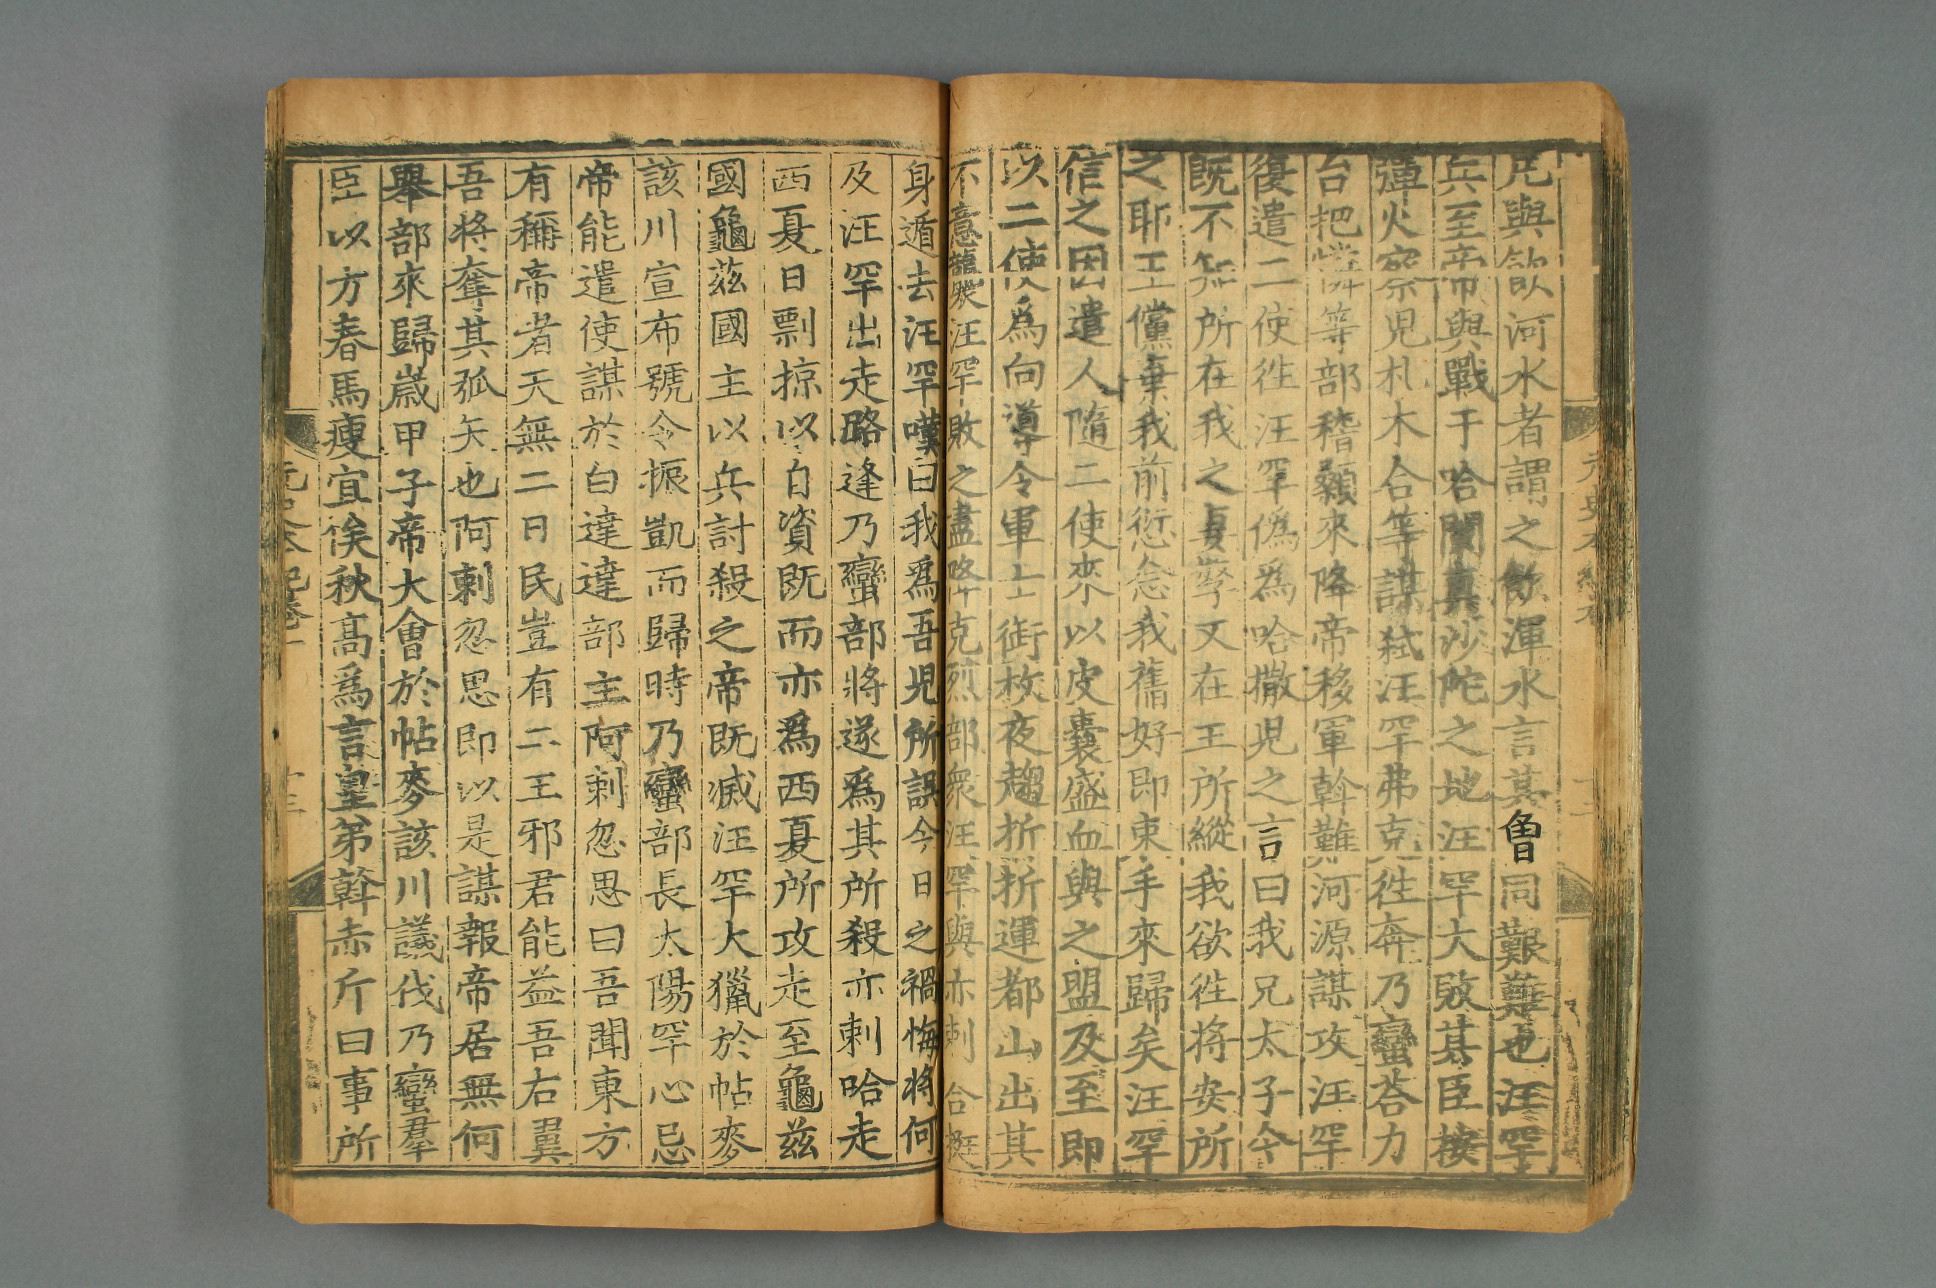 凡與飲河水者謂之飲渾水言其曾同艱難也汪罕
兵至帝與戰于哈闌真沙陀之地汪罕大敗其臣按
彈火察兒札木合等謀弒汪罕弗克往奔乃蠻荅力
台把憐等部稽顙來降帝移軍斡難河源謀攻汪罕
復遣二使徃汪罕偽為哈撒兒之言曰我兄太子今
既不知所在我之妻孥又在王所縱我欲徃將安所
之耶王儻棄我前愆念我舊好即束手來歸矣汪罕
信之因遣人隨二使來以皮囊盛血與之盟及至即
以二使為向導令軍士銜枚夜趨折折運都山出其
不意襲汪罕敗之盡降克烈部衆汪罕與亦剌合挺
身遁去汪罕嘆曰我為吾兒所誤今日之禍悔將何
及汪罕出走路逢乃蠻部將遂為其所殺亦剌哈走
西夏日剽掠以自資既而亦為西夏所攻走至龜茲
國龜茲國主以兵討殺之帝既滅汪罕大獵於帖麥
該川宣布號令振凱而歸時乃蠻部長太陽罕心忌
帝能遣使謀於白達達部主阿剌忽思曰吾聞東方
有稱帝者天無二日民豈有二王邪君能益吾右翼
吾將奪其弧矢也阿剌忽思即以是謀報帝居無何
舉部來歸歲甲子帝大會於帖麥該川議伐乃蠻羣
臣以方春馬瘦宜俟秋高為言皇弟斡赤斤曰事所
元史本紀卷一
十三